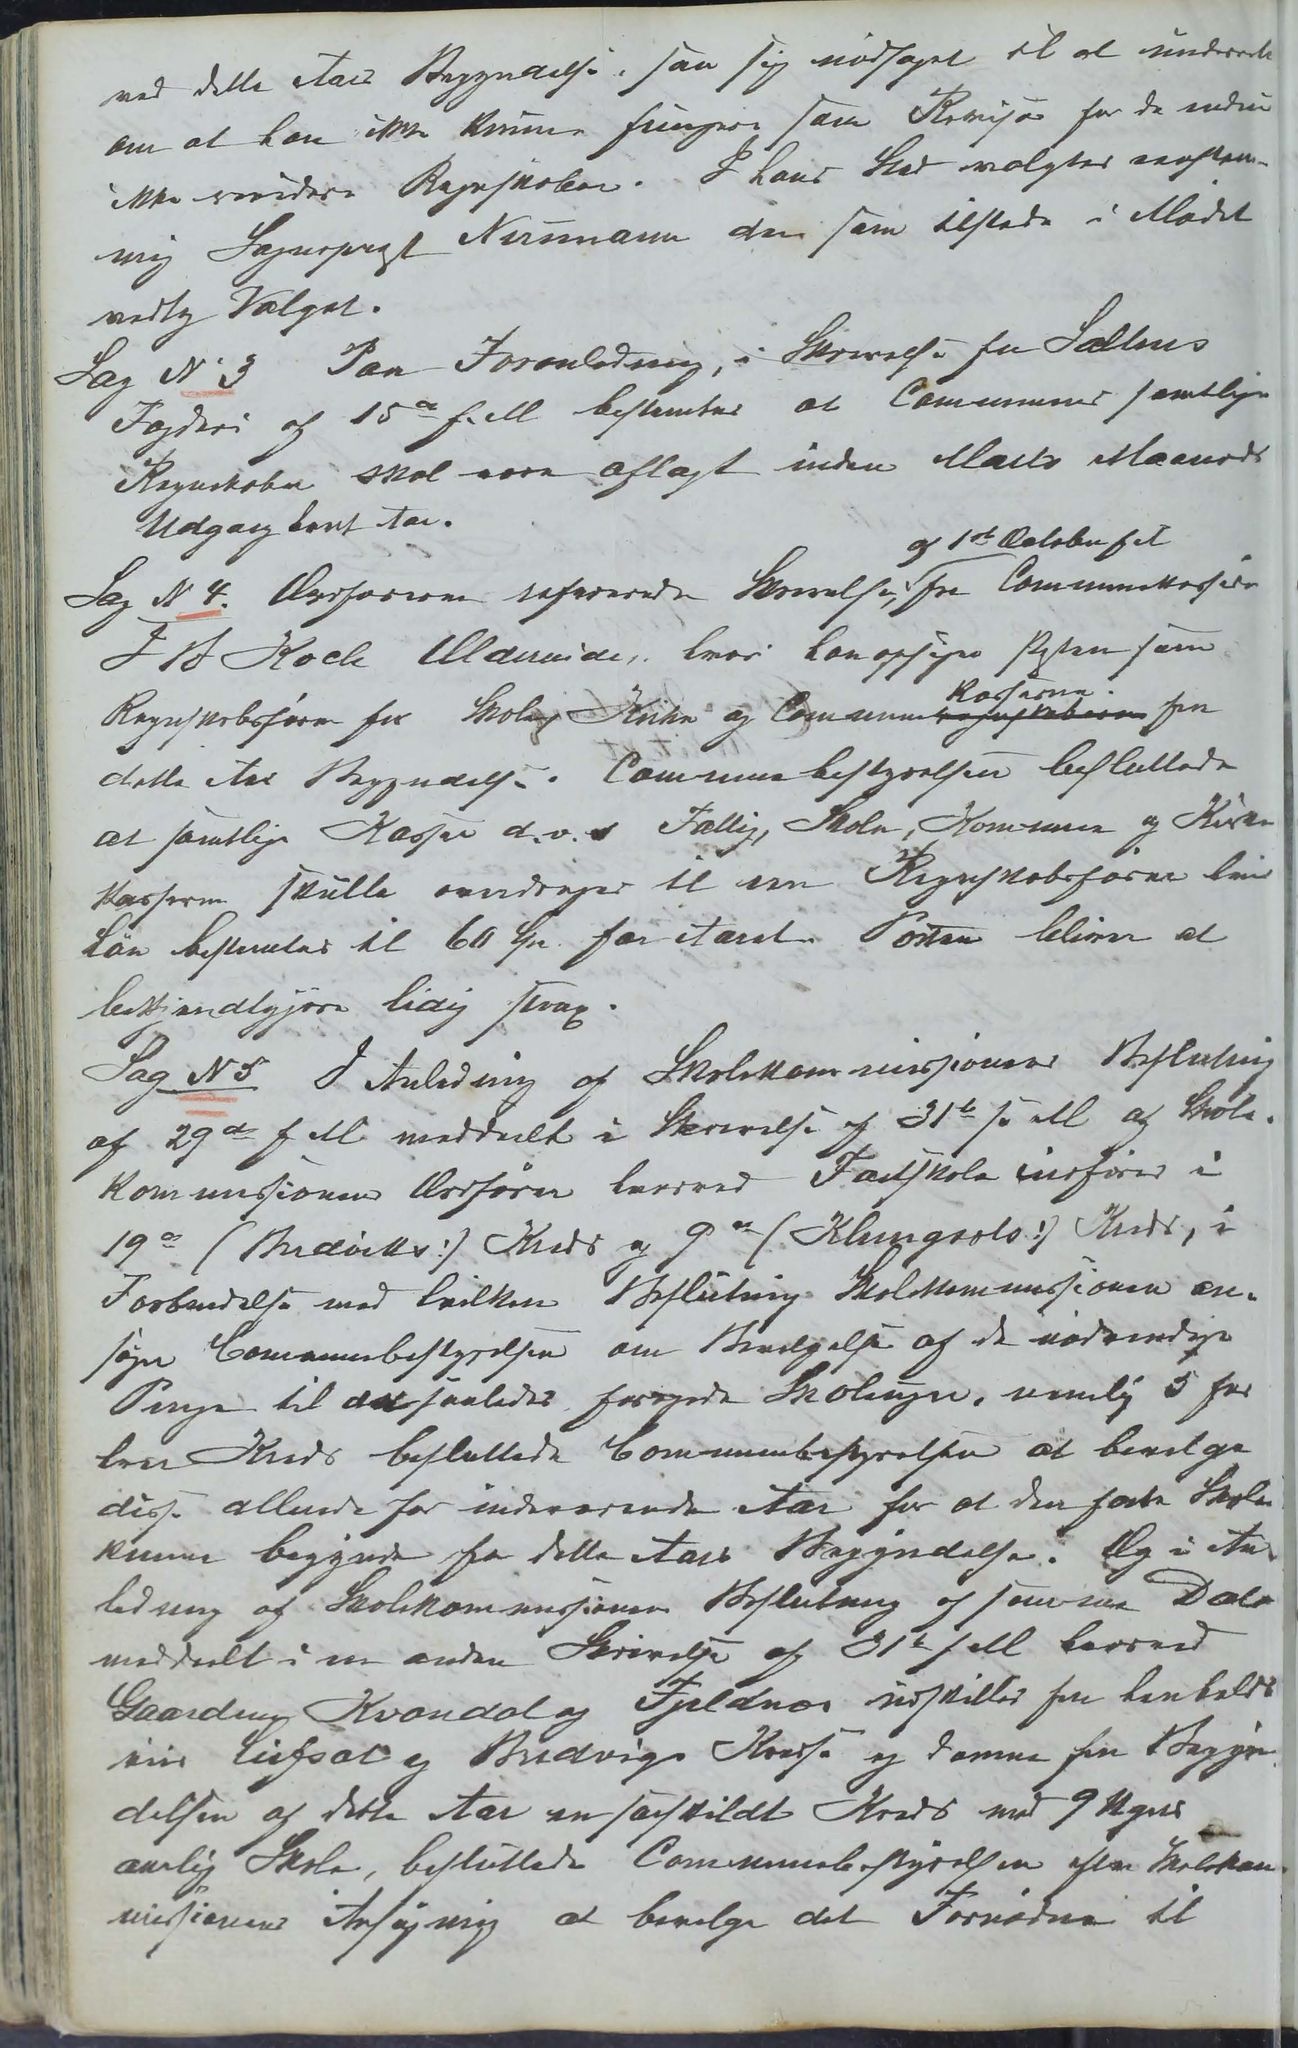 ved dette Aars Begyndelse, saa sig nødsaget til at underrette
om at han ikke kunne fungere som Revisor for de endnu
ikke reviderte Regnskaber. I hans Sted valgtes eenstem-
mig Lagensprægt Neumann der som tilstede i Mødet
vedtog Valget.
Sag N: 3 Paa Foranledning, i Skrivelse fra Saltens
Fogderi af 15de f. M bestemtes at Communens samtlige
Regnskaber skal være aflagt inden Marts Maaneds
Udgang hvert Aar.
af 1ste October f A
Sag N 4. Ordføreren refererede Skrivelse, fra Communekasserer
J H Koch Ulderuide, hvori han opsiger Posten som
Kasserne.
Regnskabsfører for Skole, Kirke og Commune regnskaberne fra
dette Aars Begyndelse. Communebestyrelsen besluttede
at samtlige Kasser d.v.s Fattig, Skole, Kommune og Kirke
kasserne skulle overdrages til en Regnskabsfører hvis
Løn bestemtes til 60 Spd. for Aaret. Posten bliver at
bekjendtgjøre ledig strax.
Sag N 5 I Anledning af Skolekommissionens Beslutning
af 29de f M meddeelt i Skrivelse af 31te s M af Skole-
kommissionens Ordfører hvorved Fastskole indføres i
19de (Bredviks:) Kreds og 9de (Klungsets:) Kreds, i
Forbindelse med hvilken Beslutning Skolekommissionen an-
søger Communebestyrelsen om Bevilgelse af de nødvendige
Penge til de saaledes forøgede Skoleuger, nemlig 5 for
hver Kreds besluttede Communebestyrelsen at bevilge
disse allerede for indeværende Aar for at den faste Skole
kunne begynde fra dette Aars Begyndelse. Og i An-
ledning af Skolekommissionens Beslutning af samme Dato
meddeelt i en anden Skrivelse af 31te f M hvorved
Gaardene Kvandal og Fjeldnes udskilles fra henholds
vis Liefsæt og Bredvigs Kredse og danne fra Begyn-
delsen af dette Aar en særskildt Kreds med 9 Ugers
aarlig Skole, besluttede Communebestyrelsen efter Skolekom-
missionens Ansøgning at bevilge det Fornødne til